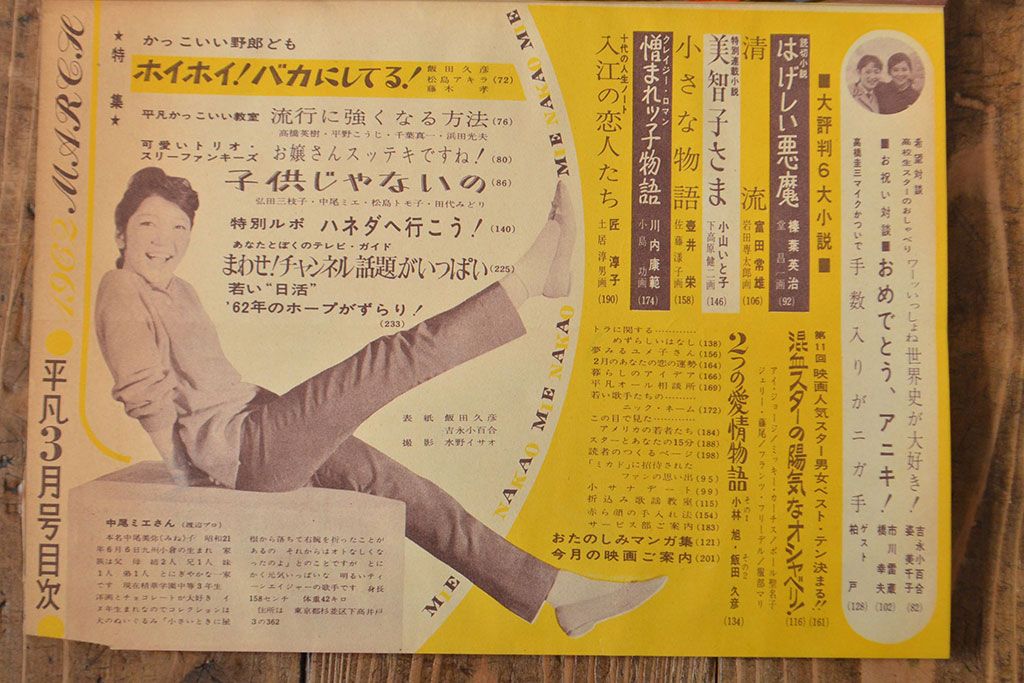 平凡3月号目次
1962 MARCH
★特集★
かっこいい野郎ども
ホイホイ!バカにしてる!
飯田久彦
松島アキラ(72)
藤木 孝
平凡かっこいい教室 流行に強くなる方法(76)
高橋英樹・平野こうじ・千葉真一・浜田光夫
可愛いトリオ・
スリーファンキーズ お嬢さんスッテキですね!(80)
子供じゃないの(86)
弘田三枝子・中尾ミエ・松島トモ子・田代みどり
特別ルポ ハネダへ行こう!(140)
あなたとぼくのテレビ・ガイド
まわせ!チャンネル話題がいっぱい(225)
若い“日活”
’62年のホープがずらり!
(233)
表紙 飯田久彦
吉永小百合
撮影 水野イサオ
MIE NAKAO MIE NAKAO MIE NAKAO MIE
中尾ミエさん(渡辺プロ)
本名中尾美弥(みね)子 昭和21
年6月6日九州小倉の生まれ 家
族は父 母 姉2人 兄1人 妹
1人 弟1人 とにぎやかな一家
です 現在精華学園中等3年生
洋画とチョコレートが大好き イ
ヌ年生まれなのでコレクションは
犬のぬいぐるみ「小さいときに屋
根から落ちて右腕を折ったことが
あるの それからはオトなしくな
ったのよ」とのことですが とに
かく元気いっぱいな 明るいティ
ーンエイジャーの歌手です 身長
158センチ 体重42キロ
住所は 東京都杉並区下高井戸
3の362
希望対談
高校生スターのおしゃべり ワーッいっしょね世界史が大好き!
吉永小百合
姿 美千子
(82)
■お祝い対談■おめでとう、アニキ!
市川雷蔵
橋 幸夫
(102)
高橋圭三マイクかついで 手数入りがニガ手
ゲスト
柏 戸
(128)
■大評判6大小説■
読切小説
はげしい悪魔 榛葉英治
堂 昌一画
(92)
清流 富田常雄
岩田専太郎画
(106)
特別連載小説
美智子さま 小山いと子
下高原健二画
(146)
小さな物語 壺井 栄
佐藤漾子画
(158)
クレイジー・ロマン
憎まれッ子物語 川内康範
小島 功画
(174)
十代の人生ノート
入江の恋人たち 匠 淳子
土居淳男画
(190)
第11回映画人気スター男女ベスト・テン決まる!!(161)
混血スターの陽気なオシャベリ!(116)
アイ・ジョージ/ミッキー・カーチス/ポール聖名子
ジェリー・藤尾/フランツ・フリーデル/服部マリ
2つの愛情物語
その1
小林 旭・
その2
飯田久彦
(134)
トラに関する…………
めずらしいはなし(138)
夢みるユメ子さん(156)
2月のあなたの恋の運勢(164)
暮らしのアイデア(166)
平凡オール相談所(169)
若い歌手たちの………
ニック・ネーム(172)
この目で見た…………
アメリカの若者たち(184)
スターとあなたの15分(188)
読者のつくるページ(198)
「ミカド」に招待された
ファンの思い出(95)
小サナデート(99)
折込み歌謡教室(115)
赤ら顔の手入れ法(154)
サービス部ご案内(183)
おたのしみマンガ集(121)
今月の映画ご案内(201)